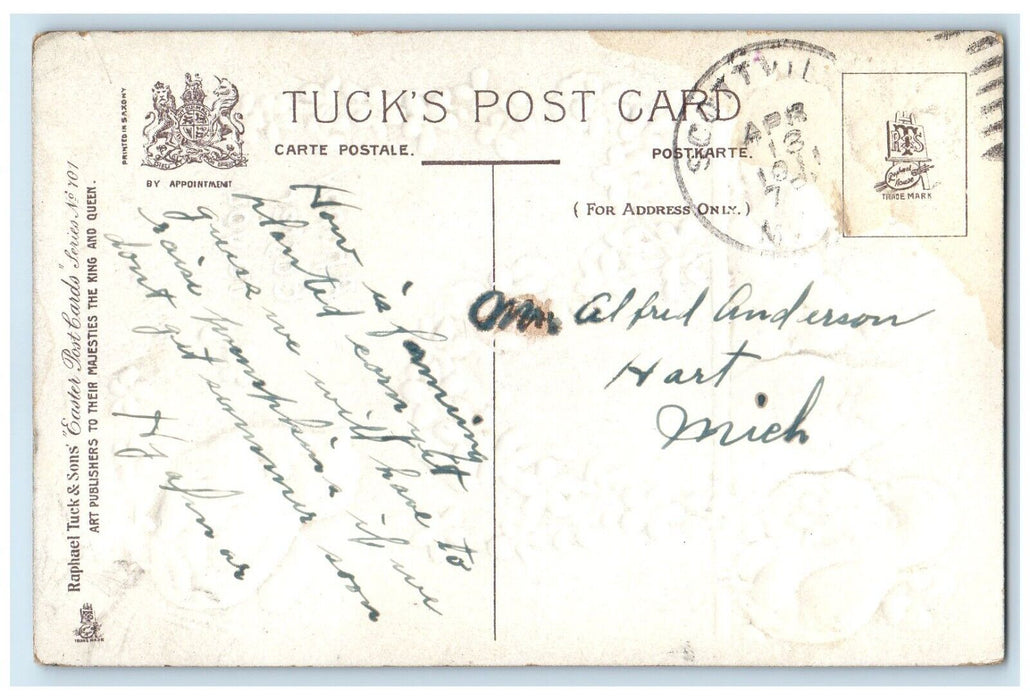 TUCK'S POST CARD
CARTE POSTALE.
POSTKARTE.
(FOR ADDRESS ONLY.)
BY APPOINTMENT
PRINTED IN SAXONY
Raphael Tuck & Sons' "Easter Post Cards" Series No 101
ART PUBLISHERS TO THEIR MAJESTIES THE KING AND QUEEN.
TRADE MARK
SCOTTVIL
APR
13
TRADE MARK
How is farming
planted corn yet
guess we will have to
raise pumpkins if we
dont get summer soon
Alfred Anderson
Hart
Mich